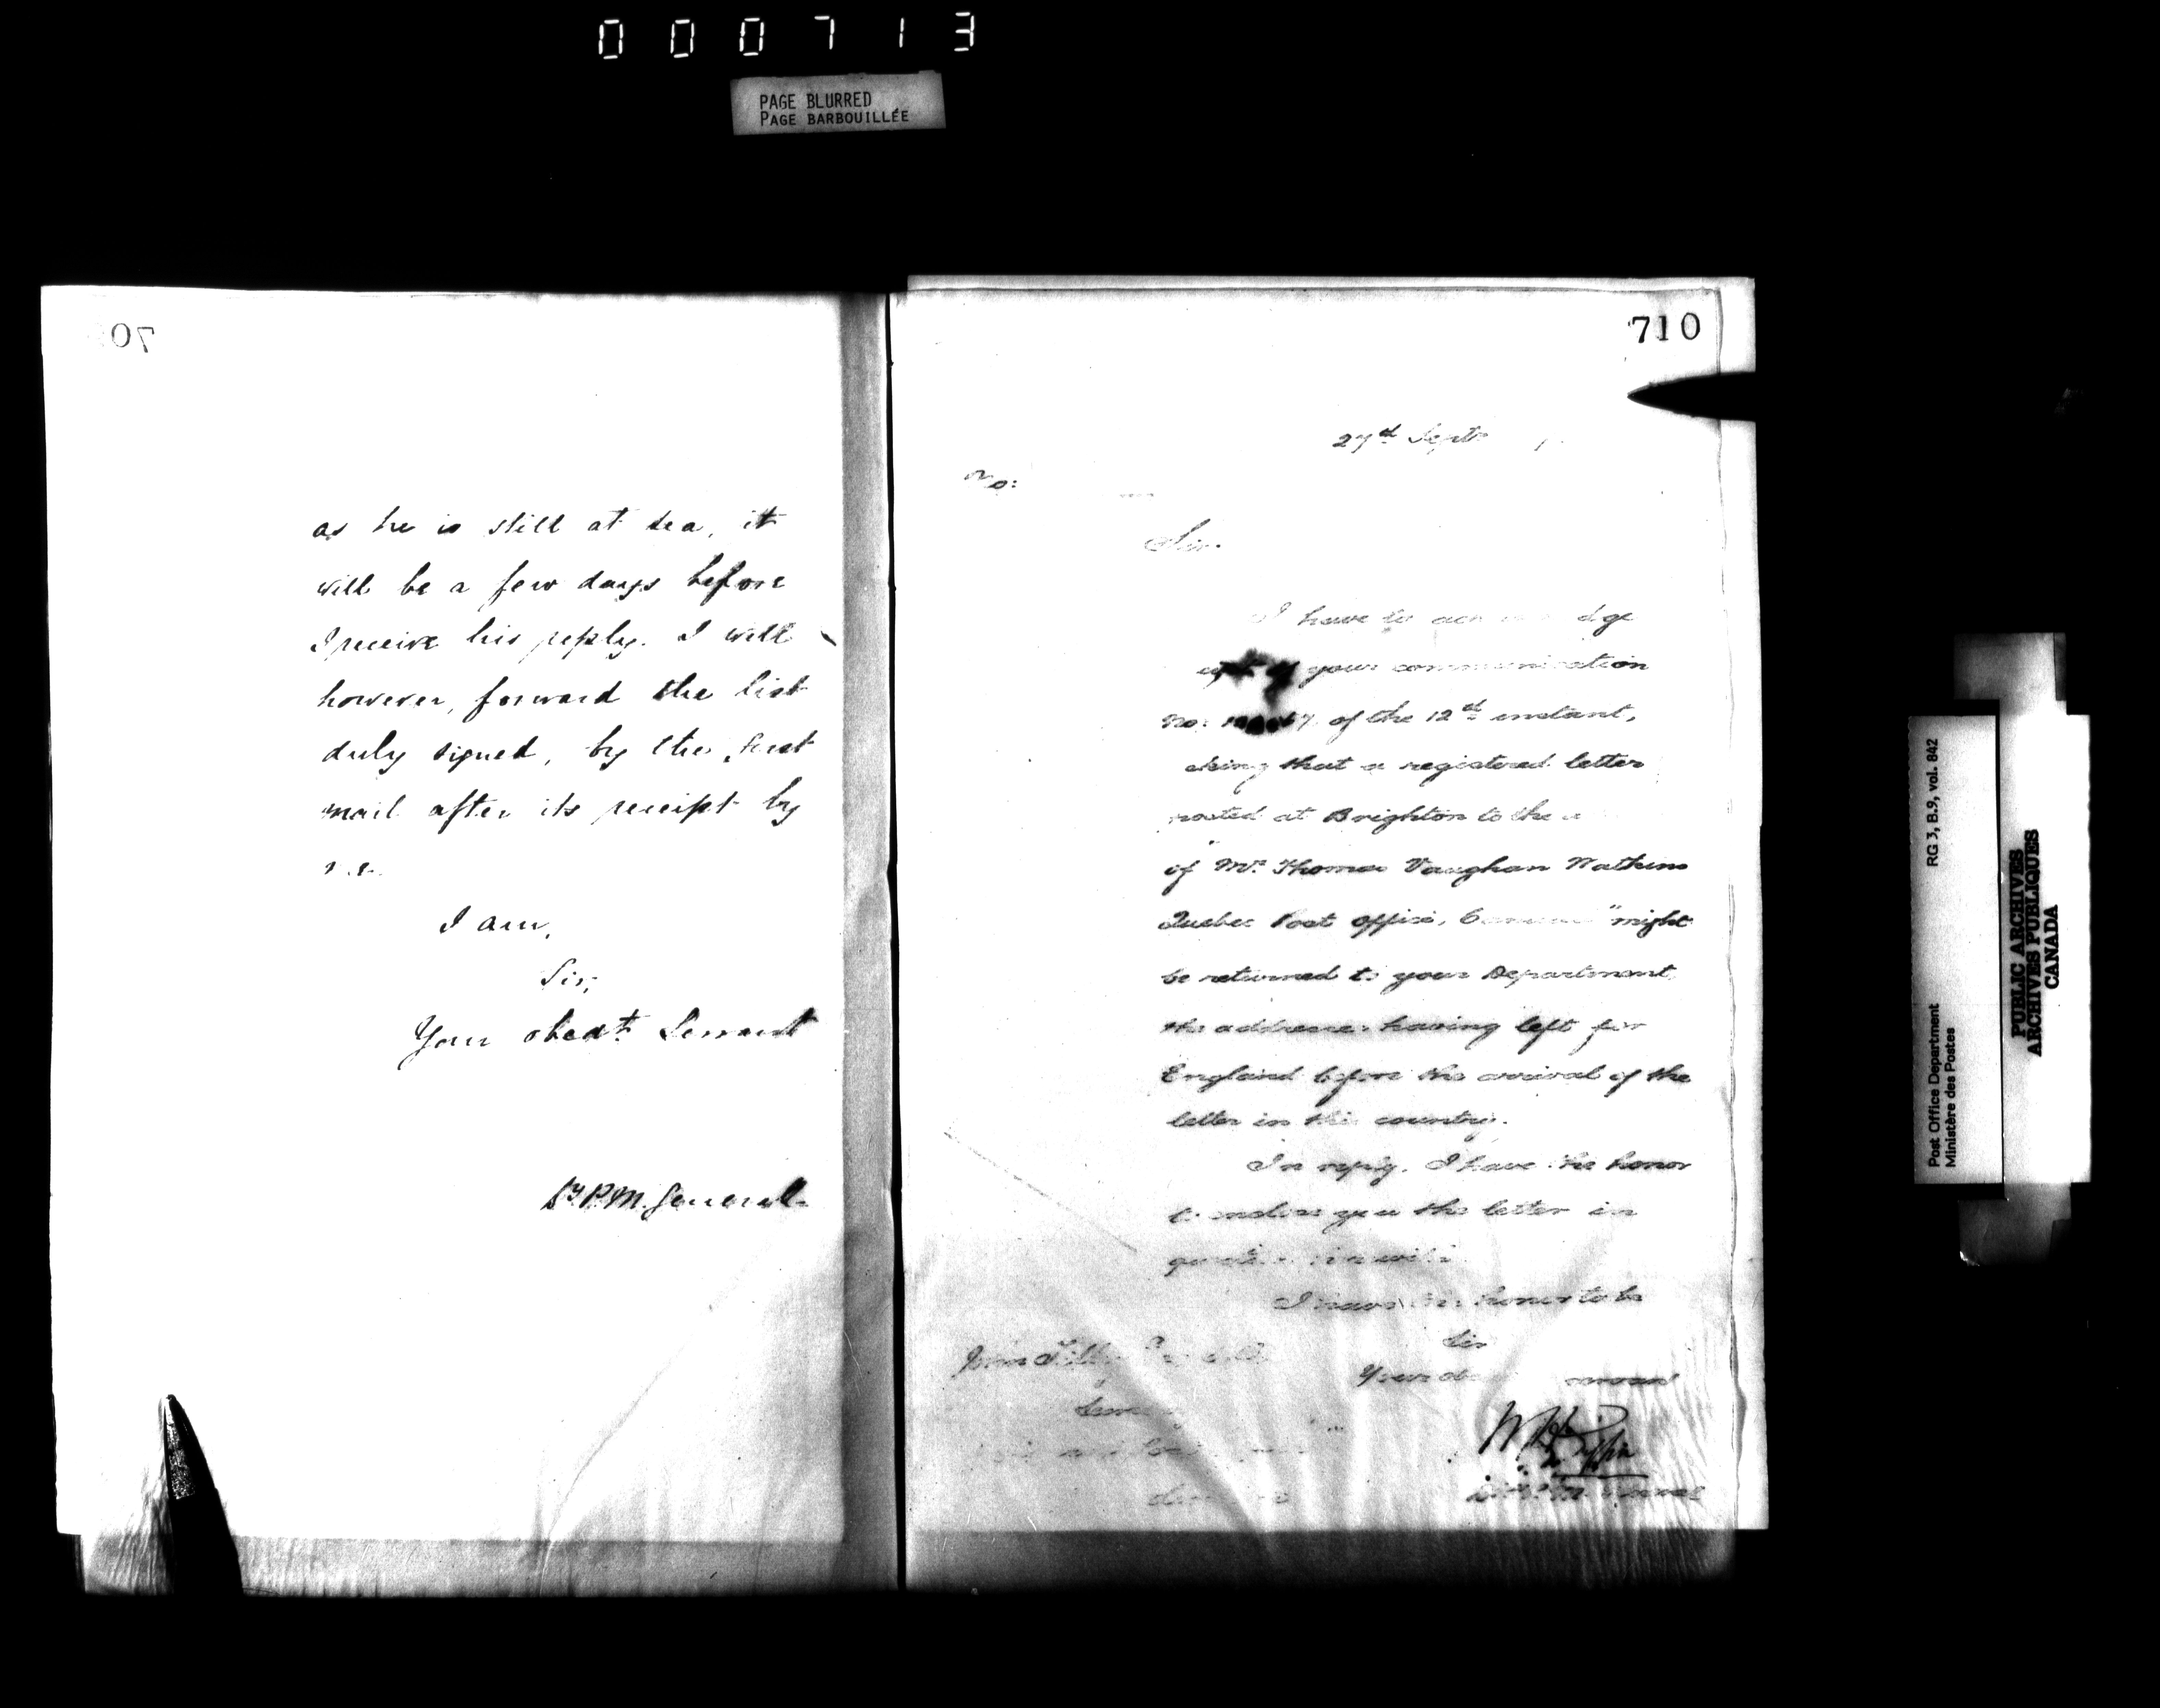 000713
PAGE BLURRED
PAGE BARBOUILLÉE
70
as he is still at sea, it
will be a few days before
I receive his reply. I will
however, forward the list
duly signed, by the first
mail after its receipt by
I am,
Sir,
Your obedt. Servant
Dy. P. M. General.
710
27th Septr
No:
Sir.
I have to
of your communication
No: of the 12th instant,
asking that a registered letter
posted at Brighton to the
of Mr. Thomas Vaughan Watkins
Quebec Post Office, "might
be returned to your Department
the addressee having left for
England before the arrival of the
letter in this country.
In reply, I have the honor
to enclose you the letter in
I have the honor to be
Sir
Your
John Tilley
W H Griffin
RG 3, B.9, vol. 842
Post Office Department
Ministère des Postes
PUBLIC ARCHIVES
ARCHIVES PUBLIQUES
CANADA